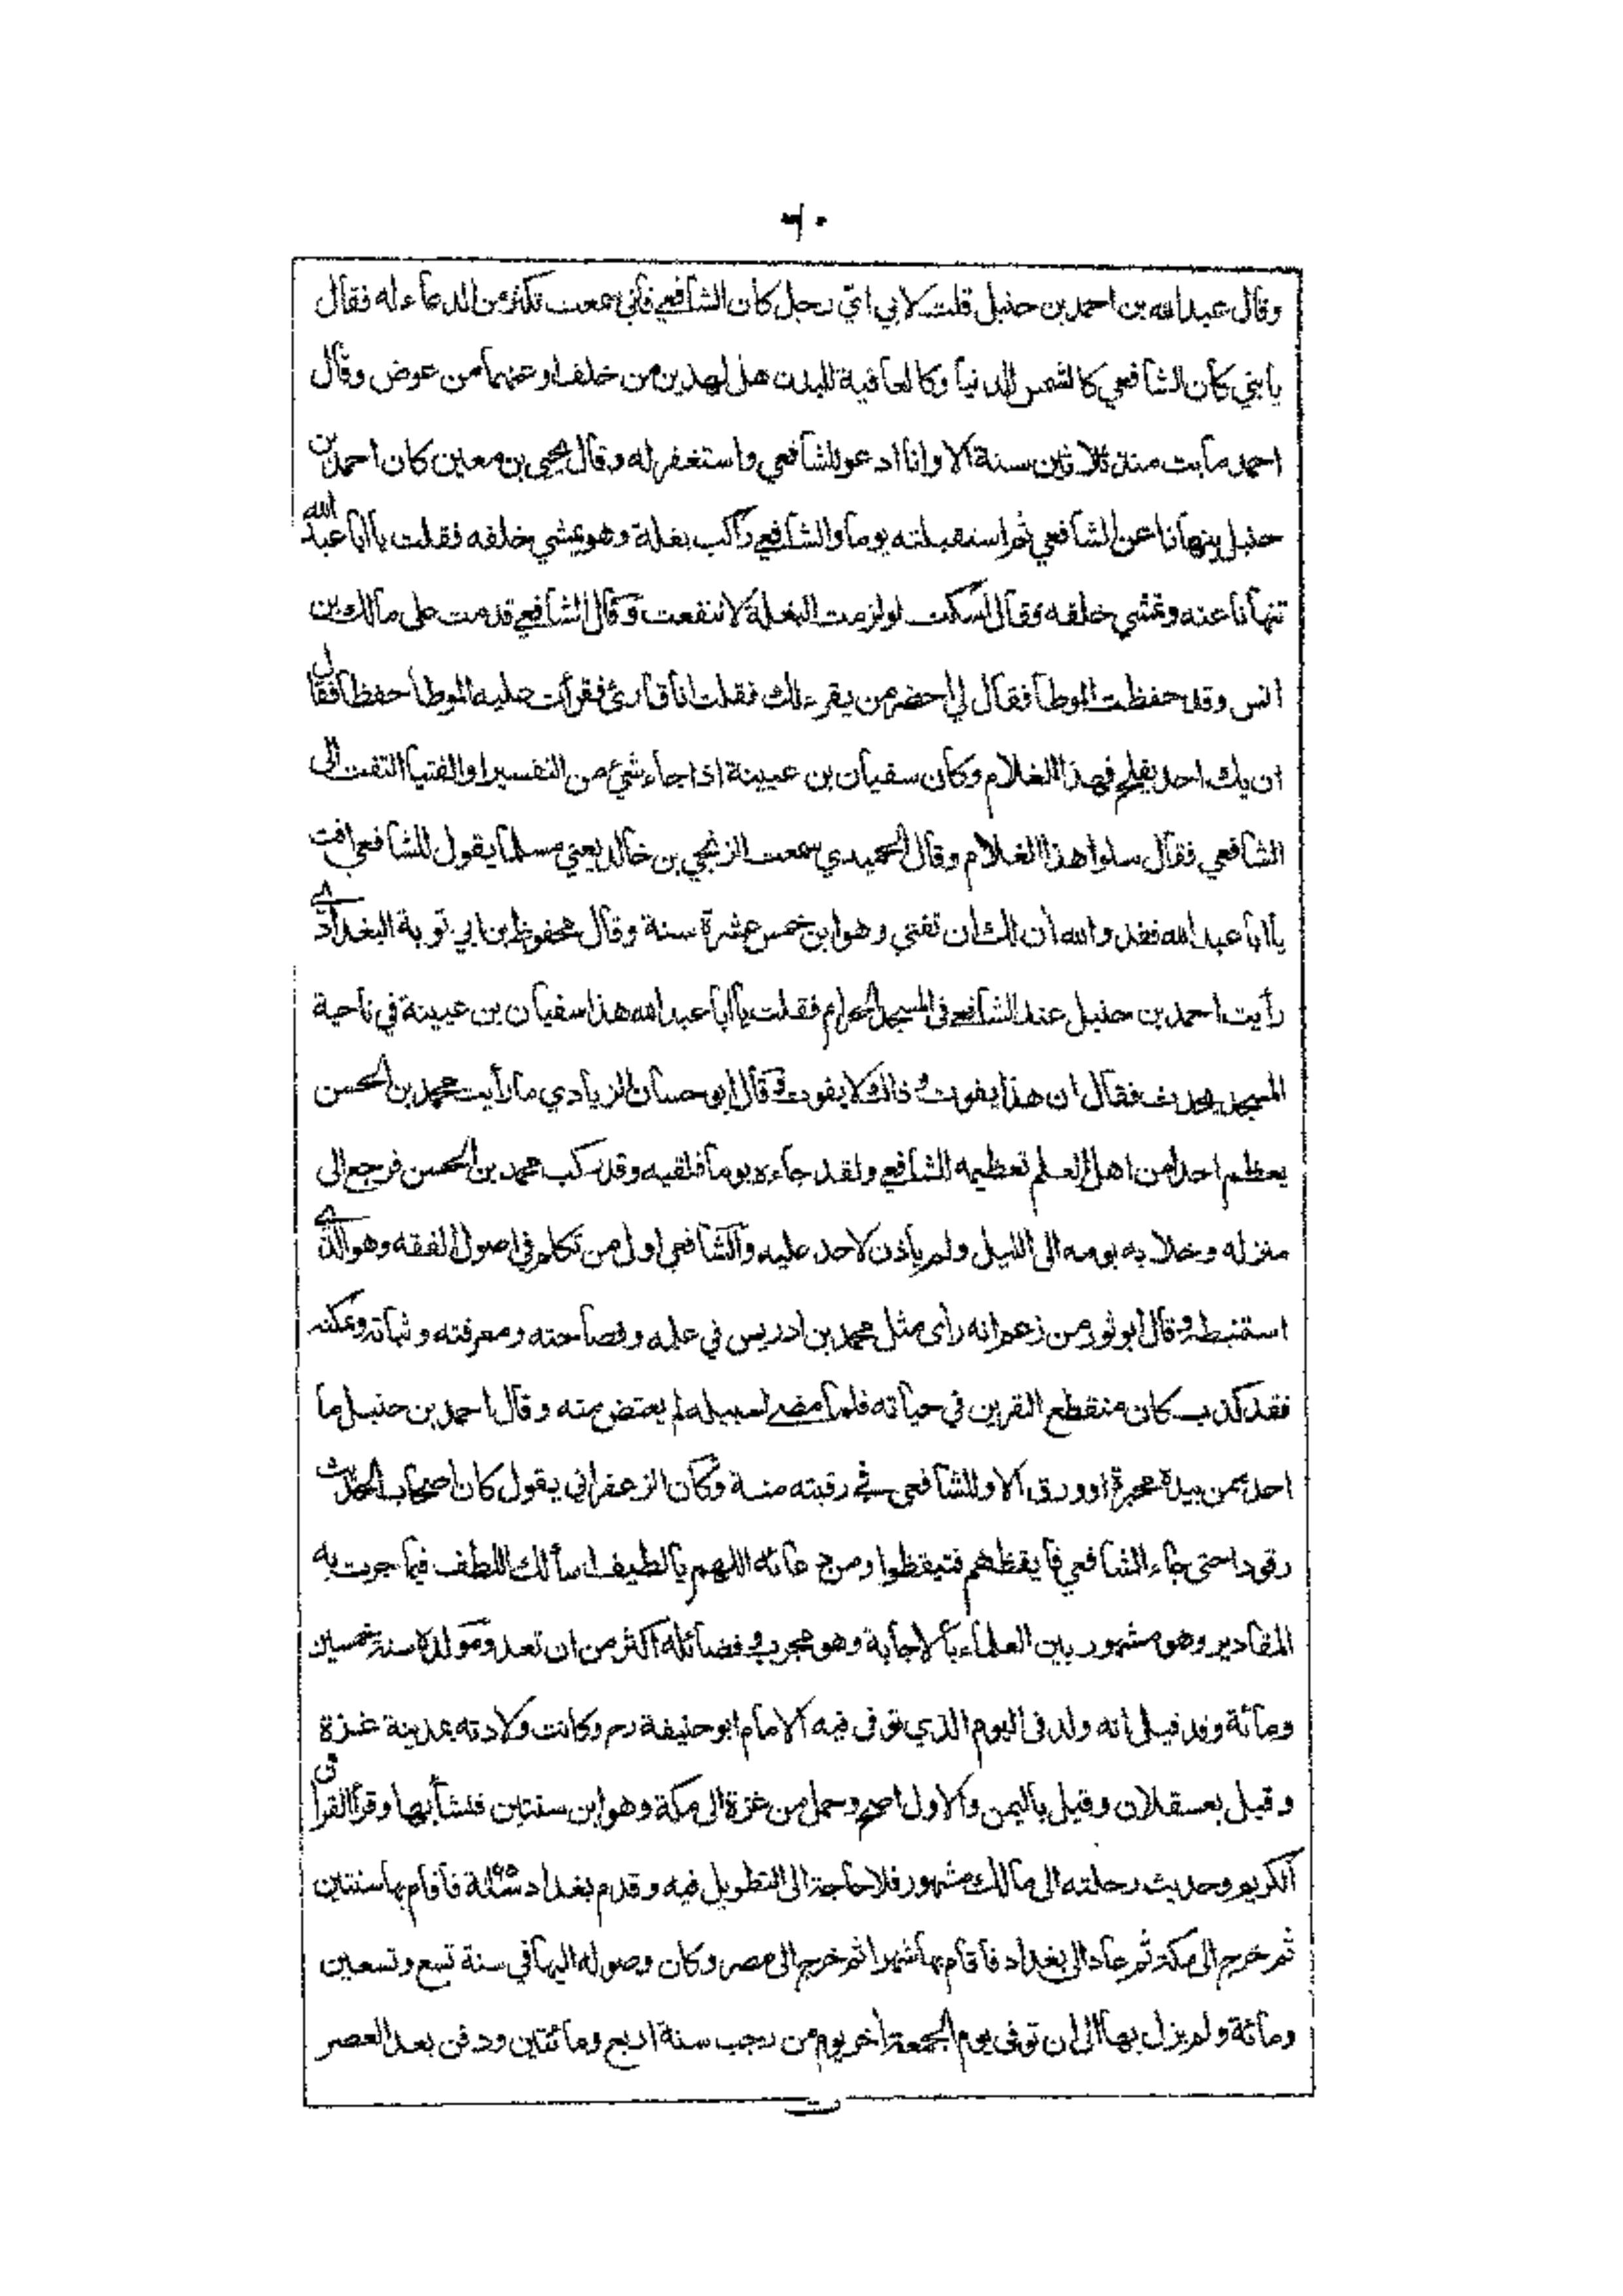 ٦٠
وقال عبد الله بن احمد بن حنبل قلت لابي اي رجل كان الشافعي فاني سمعت تكثر من الدعاء له فقال
يا بني كان الشافعي كالشمس للدنيا وكالعافية للبدن هل لهذين من خلف او عنهما من عوض وقال
احمد ما بت منذ ثلاثين سنة الا وانا ادعو للشافعي واستغفر له وقال يحيى بن معين كان احمد بن
حنبل ينهانا عن الشافعي ثم استقبلته يوما والشافعي راكب بغلة وهو يمشي خلفه فقلت يا ابا عبد الله
تنهانا عنه وتمشي خلفه فقال اسكت لو لزمت البغلة لانتفعت وقال الشافعي قدمت على مالك بن
انس وقد حفظت الموطأ فقال لي احضر من يقرء لك فقلت انا قارئ فقرأت عليه الموطأ حفظا فقال
ان يك احد يفلح فهذا الغلام وكان سفيان بن عيينة اذا جاء شئ من التفسير او الفتيا التفت الى
الشافعي فقال سلوا هذا الغلام وقال الحميدي سمعت الزنجي بن خالد يعني مسلما يقول للشافعي افت
يا ابا عبد الله فقد والله ان لك ان تفتي وهو ابن خمس عشرة سنة وقال محفوظ بن ابي توبة البغدادي
رأيت احمد بن حنبل عند الشافعي في المسجد الحرام فقلت يا ابا عبد الله هذا سفيان بن عيينة في ناحية
المسجد يحدث فقال ان هذا يفوت وذاك لا يفوت وقال ابو حسان الزيادي ما رأيت محمد بن الحسن
يعظم احدا من اهل العلم تعظيمه للشافعي ولقد جاءه يوما فلقيه وقد ركب محمد بن الحسن فرجع الى
منزله وخلا به يومه الى الليل ولم ياذن لاحد عليه والشافعي اول من تكلم في اصول الفقه وهو الذي
استنبطه وقال ابو ثور من زعم انه رأى مثل محمد بن ادريس في علمه وفصاحته ومعرفته وثباته وتمكنه
فقد كذب كان منقطع القرين في حياته فلما مضى لسبيله لم يعتض منه وقال احمد بن حنبل ما
احد ممن بيده محبرة او ورق الا وللشافعي في رقبته منة وكان الزعفراني يقول كان اصحاب الحديث
رقودا حتى جاء الشافعي فايقظهم فتيقظوا ومن دعائه اللهم يا لطيف اسألك اللطف فيما جرت به
المقادير وهو مشهور بين العلماء بالاجابة وهو مجرب وفضائله اكثر من ان تعد ومولده سنة خمسين
ومائة وقد قيل انه ولد في اليوم الذي توفى فيه الامام ابو حنيفة رح وكانت ولادته بمدينة غزة
وقيل بعسقلان وقيل باليمن والاول اصح وحمل من غزة الى مكة وهو ابن سنتين فنشأ بها وقرأ القرآن
الكريم وحديث رحلته الى مالك مشهور فلا حاجة الى التطويل فيه وقدم بغداد سنة ١٩٥ فاقام بها سنتين
ثم خرج الى مكة ثم عاد الى بغداد فاقام بها شهرا ثم خرج الى مصر وكان وصوله اليها في سنة تسع وتسعين
ومائة ولم يزل بها الى ان توفى يوم الجمعة اخر يوم من رجب سنة اربع ومائتين ودفن بعد العصر